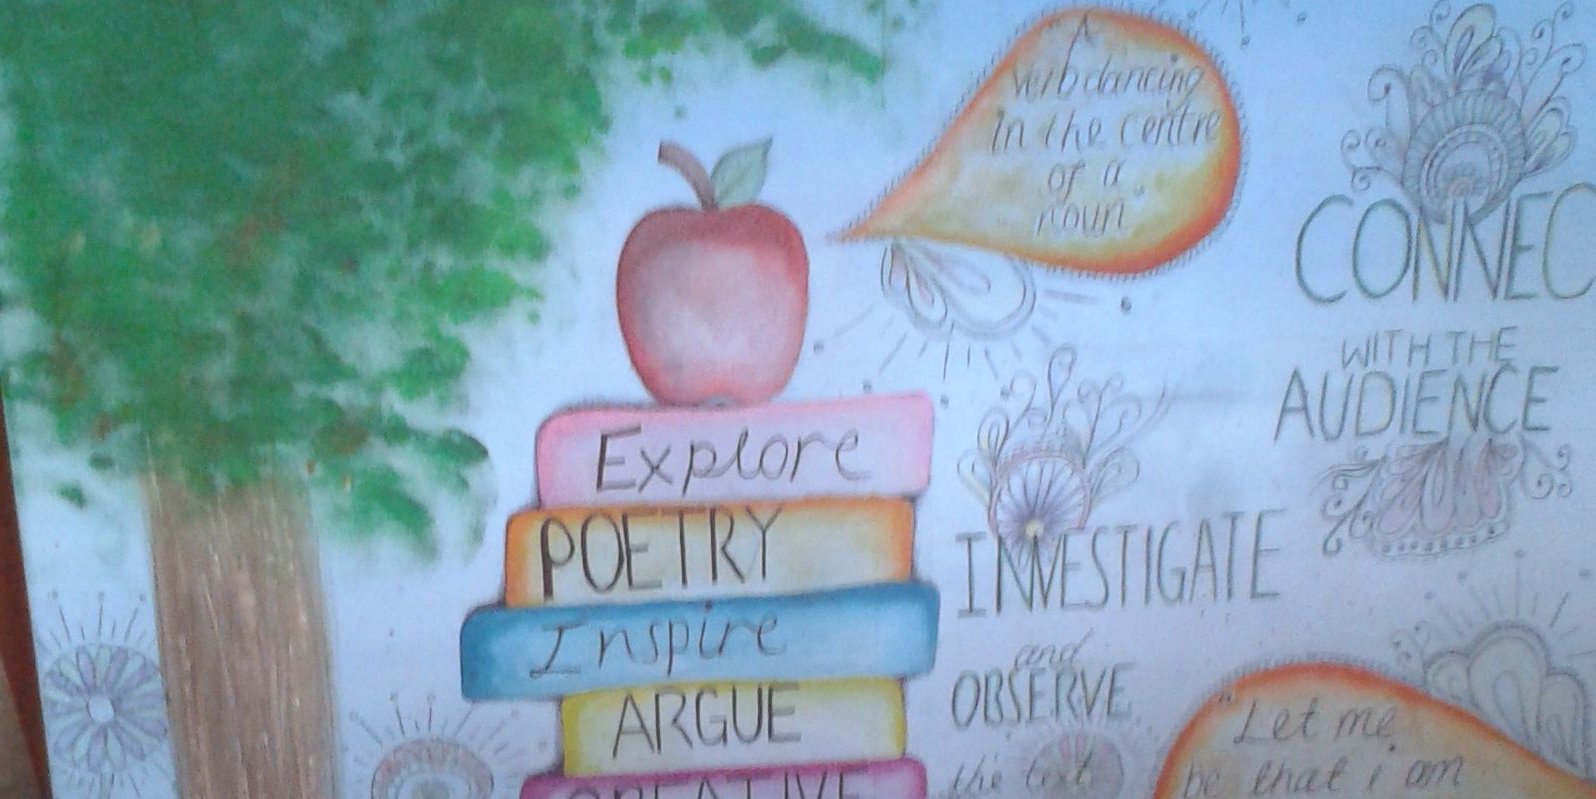 A
verb dancing
in the centre
of a
noun"
CONNEC
WITH THE
AUDIENCE
Explore
POETRY
Inspire
ARGUE
CREATIVE
INVESTIGATE
and
OBSERVE
the text
"Let me
be that i am